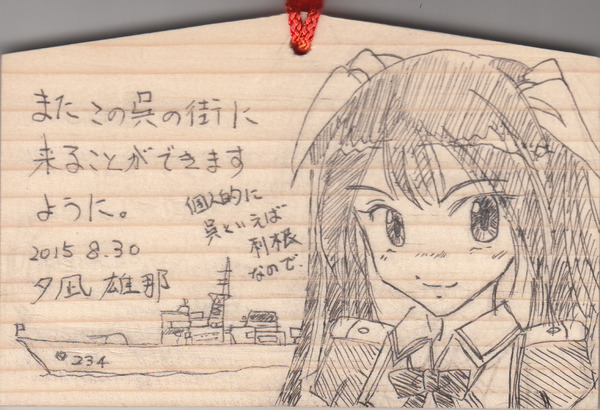 また この呉の街に
来ることができます
ように。
2015 8.30
夕凪 雄那
個人的に
呉といえば
利根
なので
234